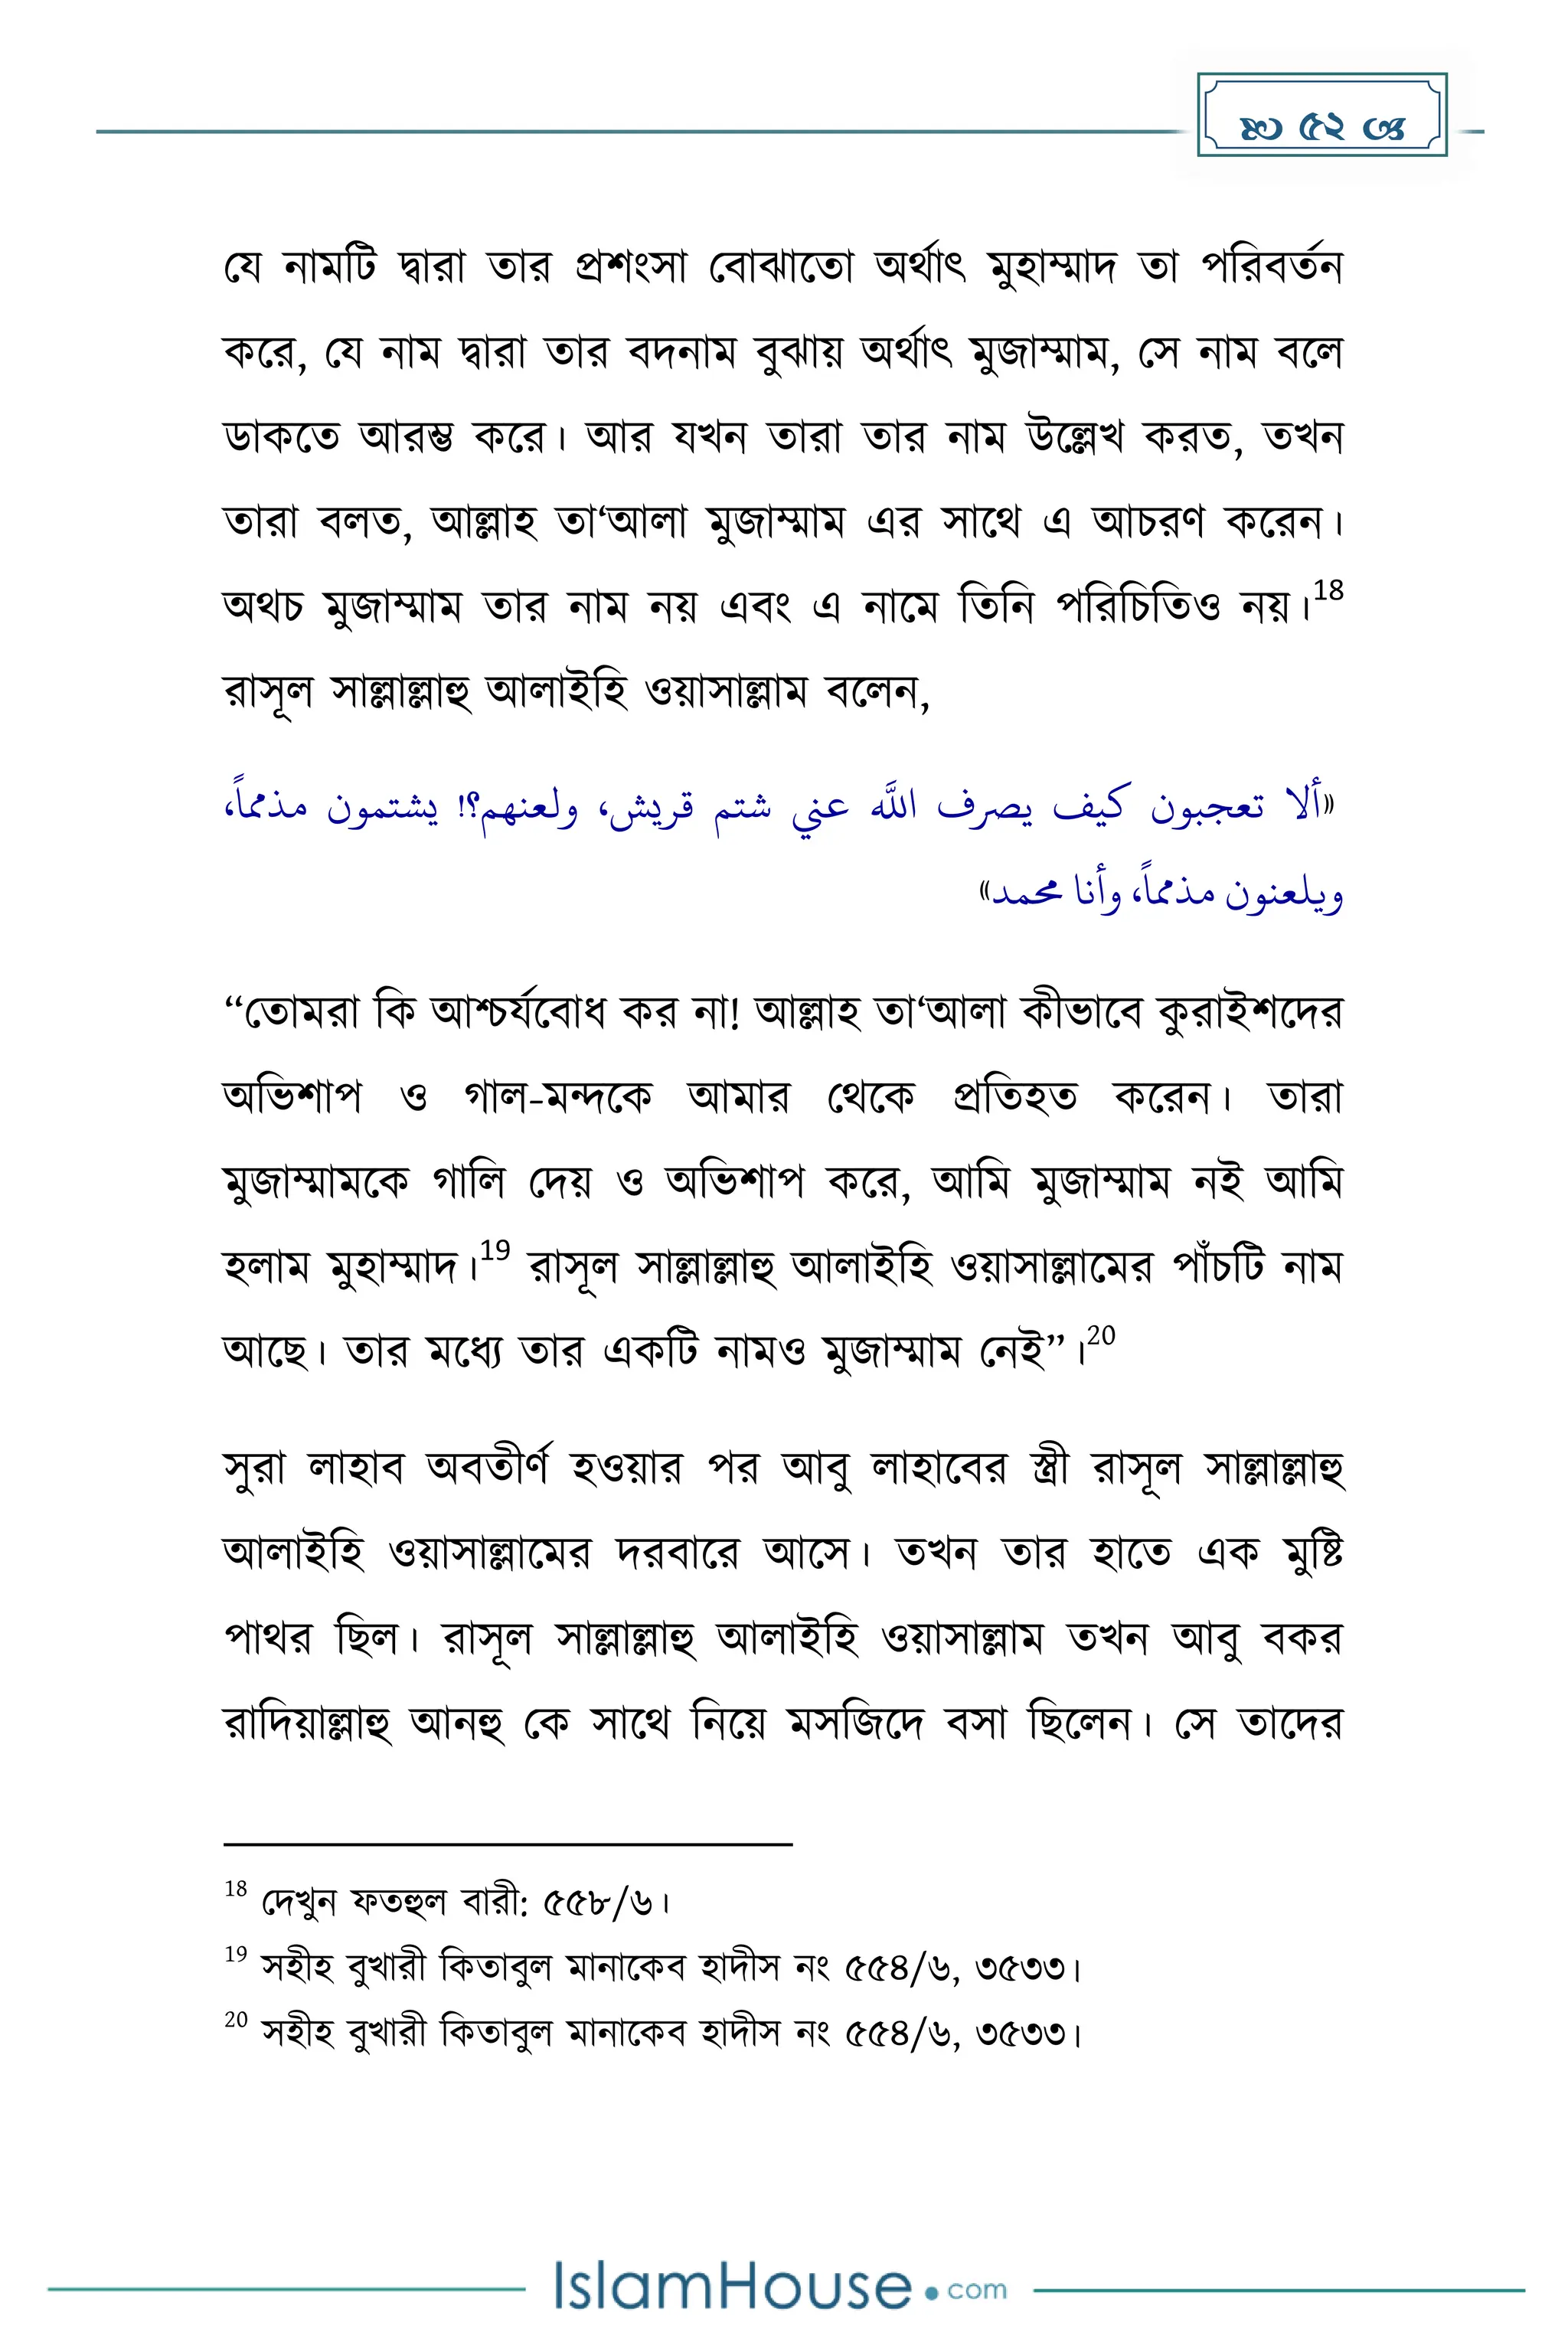 ৫২
যে নামটি দ্বারা তার প্রশংসা বোঝাতো অর্থাৎ মুহাম্মাদ তা পরিবর্তন
করে, যে নাম দ্বারা তার বদনাম বুঝায় অর্থাৎ মুজাম্মাম, সে নাম বলে
ডাকতে আরম্ভ করে। আর যখন তারা তার নাম উল্লেখ করত, তখন
তারা বলত, আল্লাহ তা‘আলা মুজাম্মাম এর সাথে এ আচরণ করেন।
অথচ মুজাম্মাম তার নাম নয় এবং এ নামে তিনি পরিচিতও নয়।18
রাসূল সাল্লাল্লাহু আলাইহি ওয়াসাল্লাম বলেন,
«ألا تعجبون كيف يصرف الله عني شتم قريش، ولعنهم؟! يشتمون مذمماً،
ويلعنون مذمماً، وأنا محمد»
“তোমরা কি আশ্চর্যবোধ কর না! আল্লাহ তা‘আলা কীভাবে কুরাইশদের
অভিশাপ ও গাল-মন্দকে আমার থেকে প্রতিহত করেন। তারা
মুজাম্মামকে গালি দেয় ও অভিশাপ করে, আমি মুজাম্মাম নই আমি
হলাম মুহাম্মাদ।19 রাসূল সাল্লাল্লাহু আলাইহি ওয়াসাল্লামের পাঁচটি নাম
আছে। তার মধ্যে তার একটি নামও মুজাম্মাম নেই”।20
সুরা লাহাব অবতীর্ণ হওয়ার পর আবু লাহাবের স্ত্রী রাসূল সাল্লাল্লাহু
আলাইহি ওয়াসাল্লামের দরবারে আসে। তখন তার হাতে এক মুষ্টি
পাথর ছিল। রাসূল সাল্লাল্লাহু আলাইহি ওয়াসাল্লাম তখন আবু বকর
রাদিয়াল্লাহু আনহু কে সাথে নিয়ে মসজিদে বসা ছিলেন। সে তাদের
18 দেখুন ফতহুল বারী: ৫৫৮/৬।
19 সহীহ বুখারী কিতাবুল মানাকেব হাদীস নং ৫৫৪/৬, ৩৫৩৩।
20 সহীহ বুখারী কিতাবুল মানাকেব হাদীস নং ৫৫৪/৬, ৩৫৩৩।
IslamHouse.com